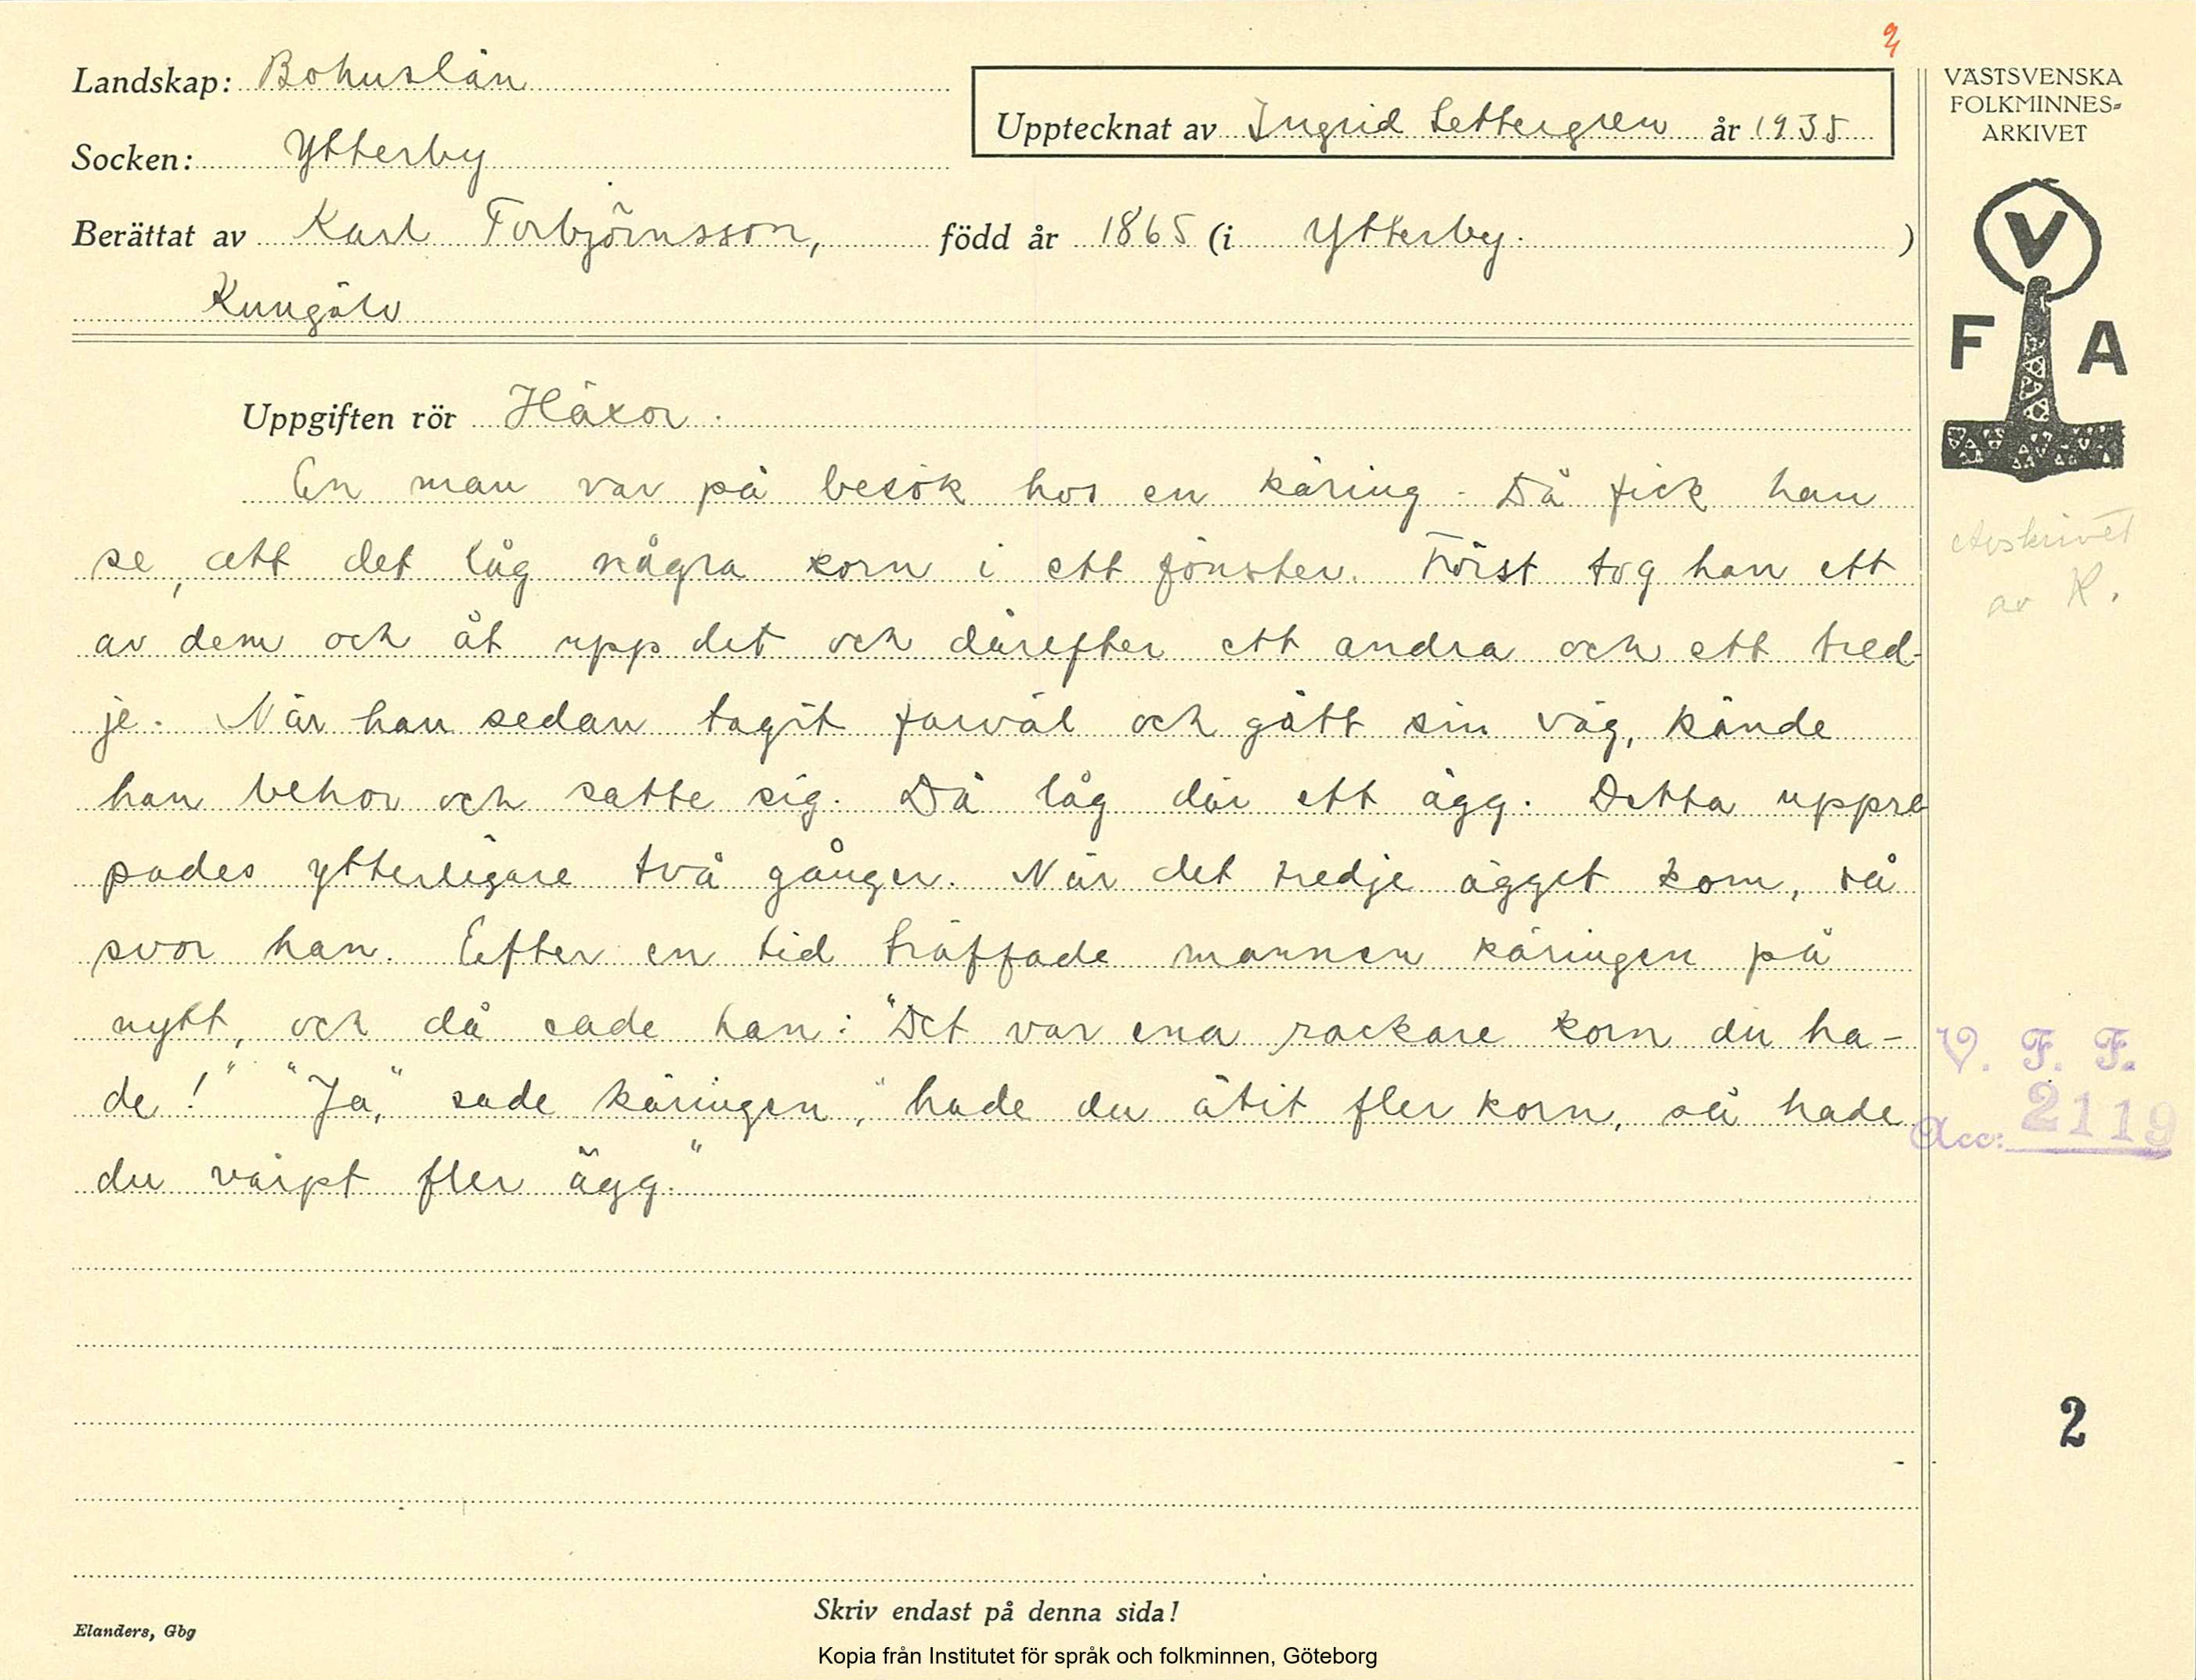 Landskap: Bohuslän
Upptecknat av Ingrid Settergren år 1935
Socken: Ytterby
Berättat av Karl Torbjörnsson, född år 1865 (i Ytterby. )
Kungälv
Uppgiften rör Häxor.
En man var på besök hos en käring. Då fick han
se, att det låg några korn i ett fönster. Först tog han ett
av dem och åt upp det och därefter ett andra och ett tred-
je. När han sedan tagit farväl och gått sin väg, kände
han behov och satte sig. Då låg där ett ägg. Detta uppre
pades ytterligare två gånger. När det tredje ägget kom, så
svor han. Efter en tid träffade mannen käringen på
nytt, och då sade han: "Det var ena rackare korn du ha-
de!" "Ja," sade käringen, "hade du ätit fler korn, så hade
du värpt fler ägg."
Skriv endast på denna sida!
Elanders, Gbg
Kopia från Institutet för språk och folkminnen, Göteborg
2
VÄSTSVENSKA
FOLKMINNES-
ARKIVET
V
F A
Avskrivet
av K.
V. F. F.
Acc: 2119
2